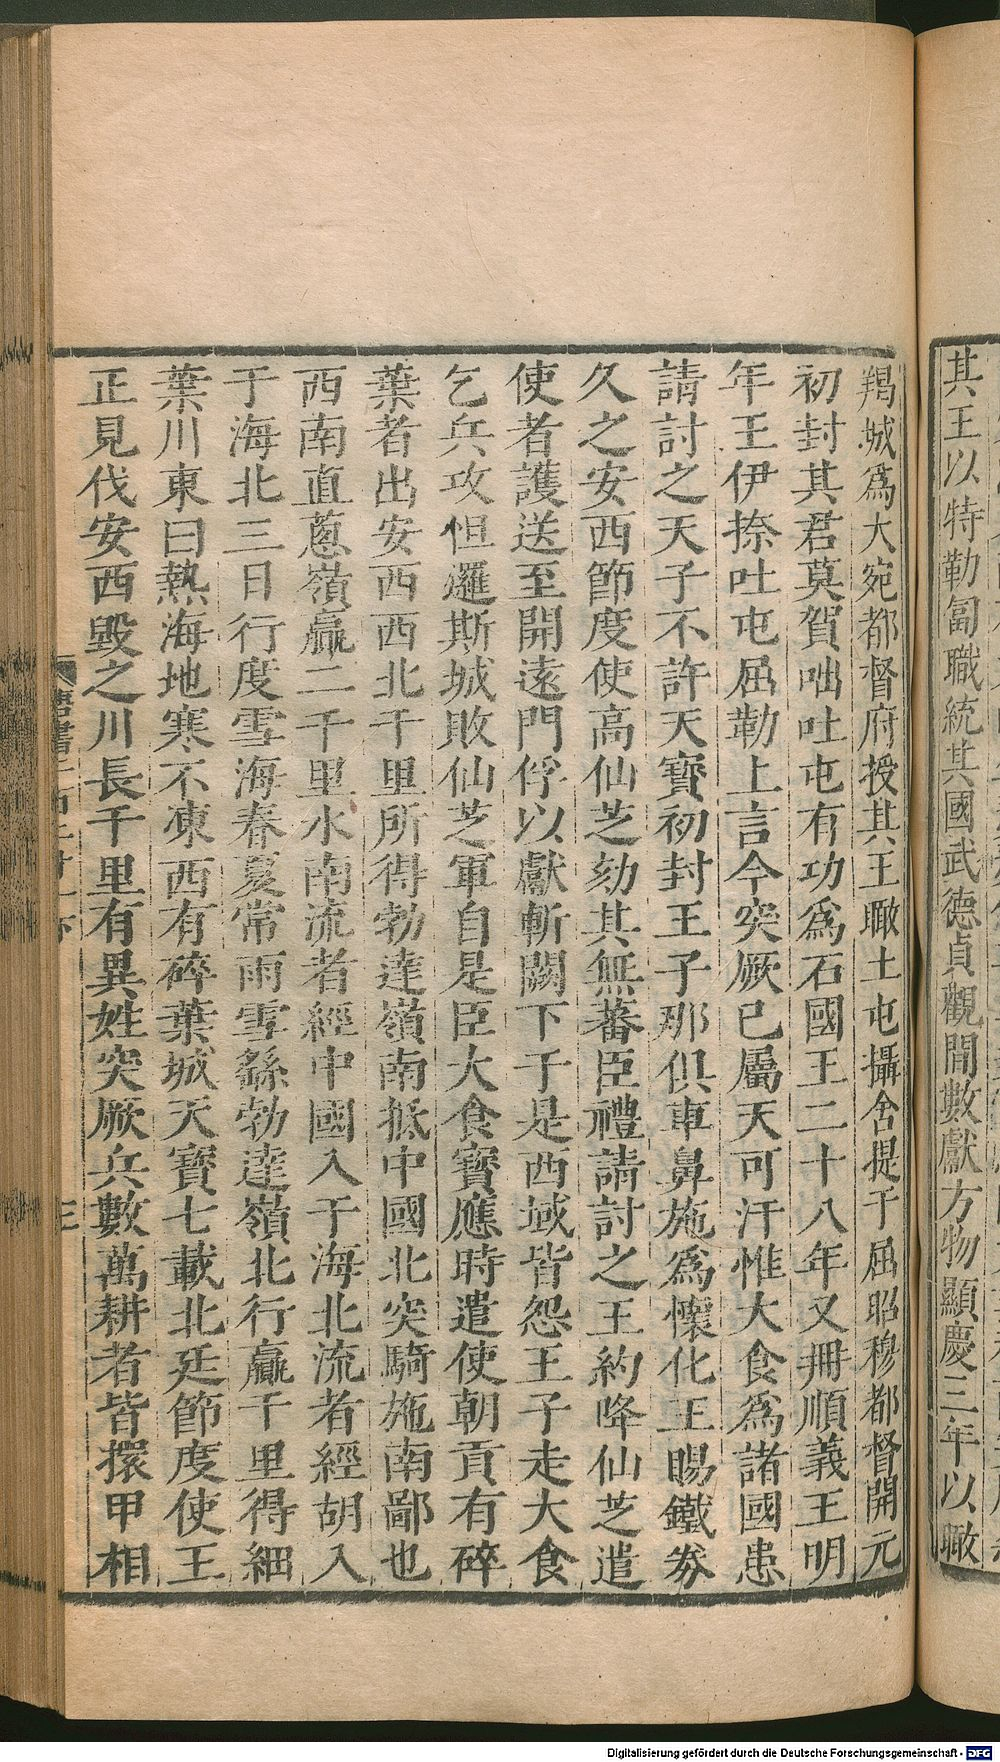 其王以特勒匐職統其國武德貞觀間數獻方物顯慶三年以瞰
羯城爲大宛都督府授其王瞰土屯攝舍提于屈昭穆都督開元
初封其君莫賀咄吐屯有功爲石國王二十八年又冊順義王明
年王伊捺吐屯屈勒上言今突厥已屬天可汗惟大食爲諸國患
請討之天子不許天寶初封王子那俱車鼻施爲懷化王賜鐵券
久之安西節度使高仙芝劾其無蕃臣禮請討之王約降仙芝遣
使者護送至開遠門俘以獻斬闕下于是西域皆怨王子走大食
乞兵攻怛邏斯城敗仙芝軍自是臣大食寶應時遣使朝貢有碎
葉者出安西西北千里所得勃達嶺南抵中國北突騎施南鄙也
西南直蔥嶺贏二千里水南流者經中國入于海北流者經胡入
于海北三日行度雪海春夏常雨雪繇勃達嶺北行贏千里得細
葉川東曰熱海地寒不凍西有碎葉城天寶七載北廷節度使王
正見伐安西毀之川長千里有異姓突厥兵數萬耕者皆擐甲相
唐書二百二十一下
三
Digitalisierung gefördert durch die Deutsche Forschungsgemeinschaft - DFG